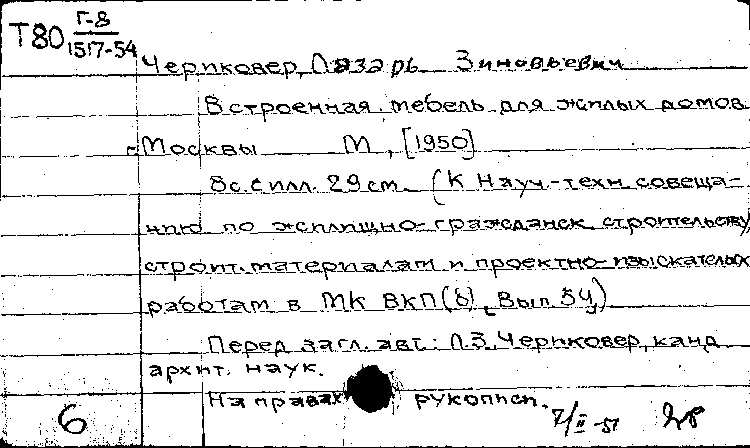 Т80 Г-8
1517-54
Чериковер, Лазарь Зиновьевич
Встроенная мебель для жилых домов
г. Москвы М., [1950]
8с. с илл. 29 см. (К Науч.-техн. совеща-
нию по жилищно-гражданск. строительству,
строит. материалам и проектно-изыскательск
работам в МК ВКП(б), Вып. 54)
Перед загл. авт.: Л.З. Чериковер, канд.
архит. наук.
На правах рукописи.
6 7/II-51